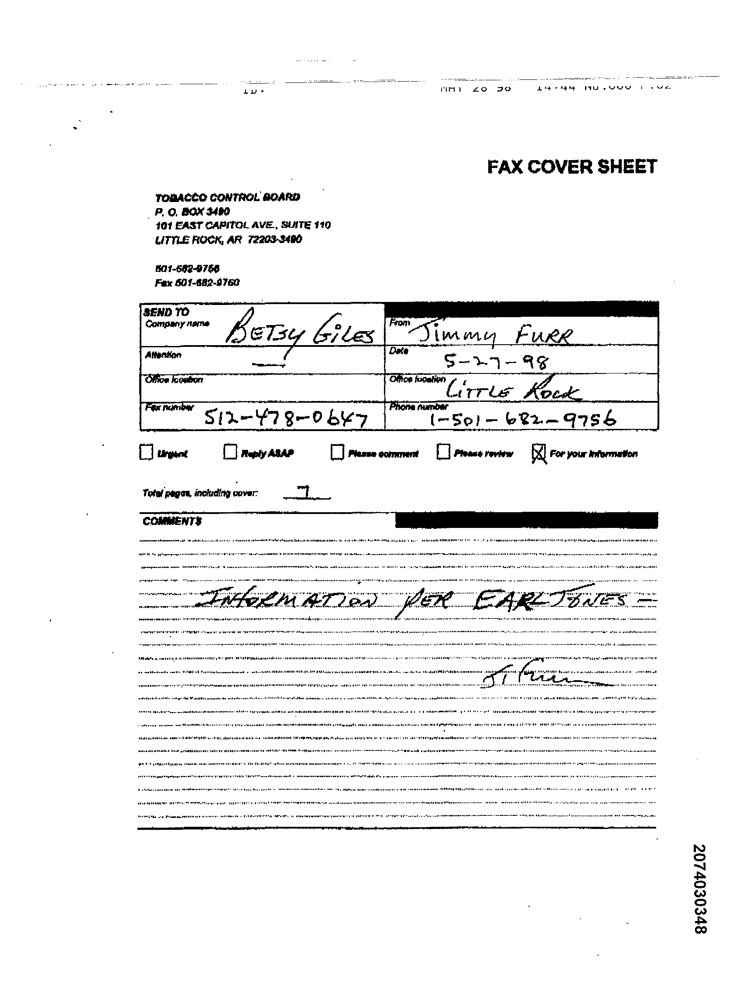 FAX COVER SHEET
TOBACCO CONTROL BOARD
P. O. BOX 3490
101 EAST CAPITOL AVE., SUITE 110
LITTLE ROCK, AR 72203-3490
501-682-9756
Fax 501-682-9760
SEND TO
Company name BETSY GILES
From Jimmy FURR
Attention
Date 5-27-98
Office location
Office location LITTLE ROCK
Fax number 512-478-0647
Phone number 1-501-682-9756
Urgent Reply ASAP Please comment Please review For your information
Total pages, including cover: 7
COMMENTS
INFORMATION PER EARL JONES -
2074030348